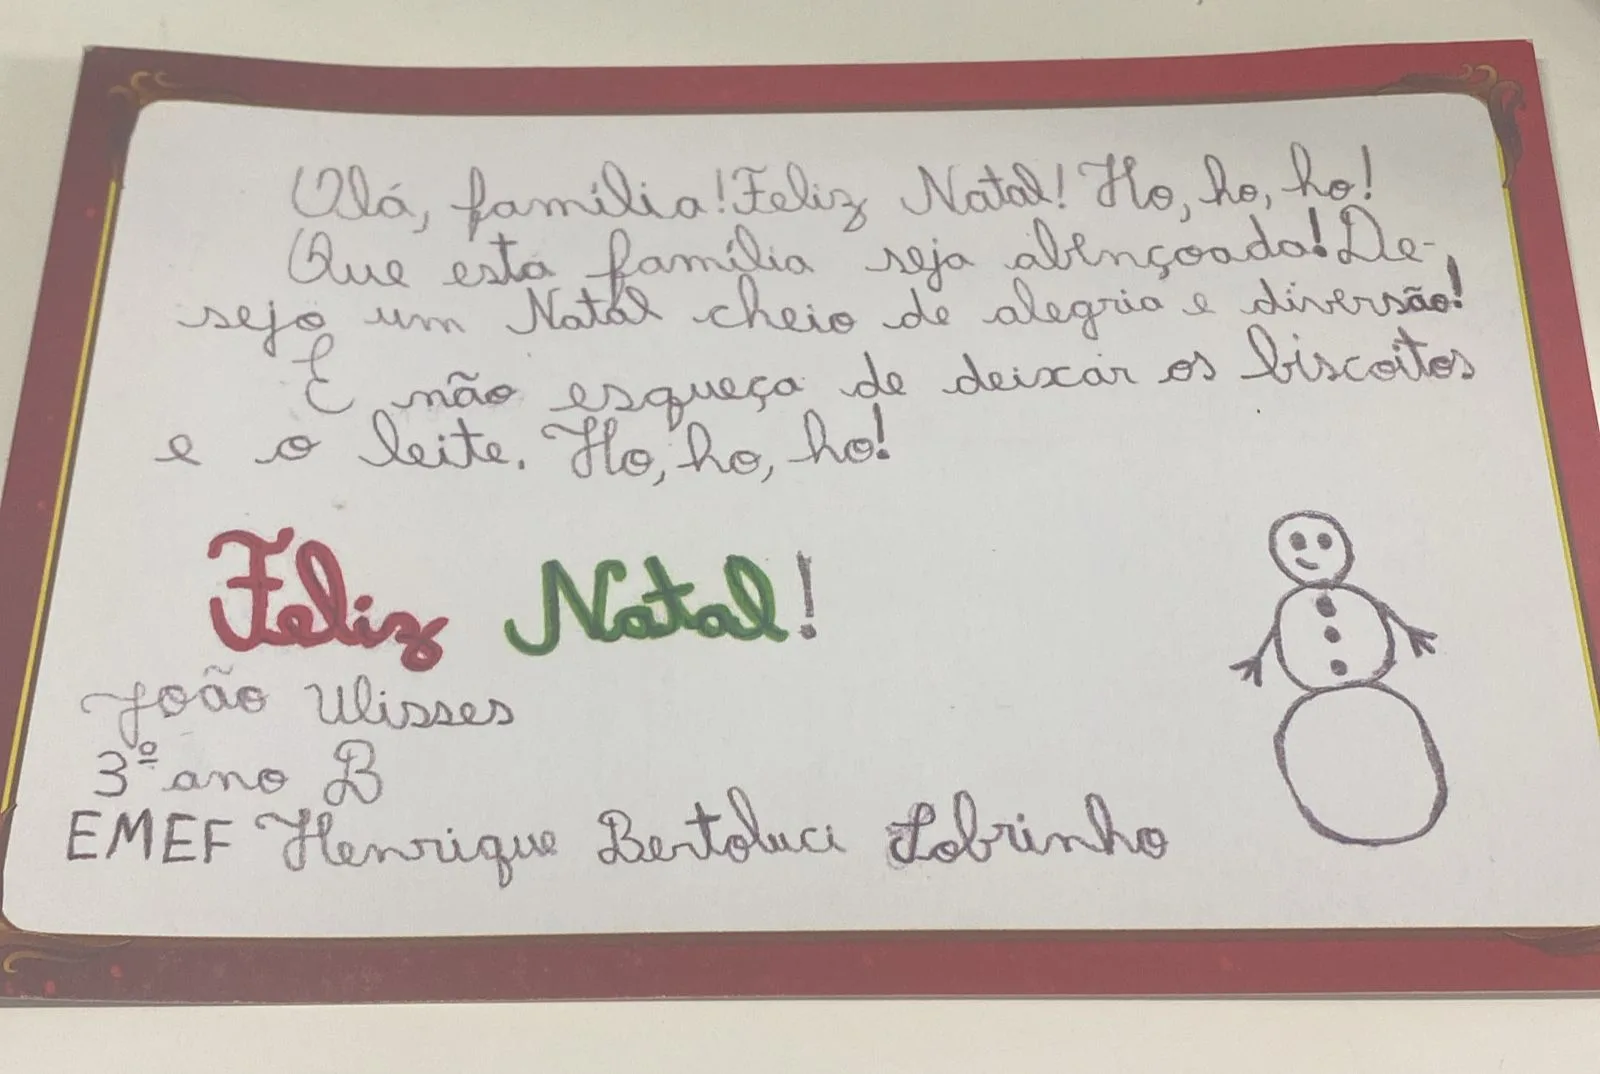 Olá, família! Feliz Natal! Ho, ho, ho!
Que esta família seja abençoada! De-
sejo um Natal cheio de alegria e diversão!
E não esqueça de deixar os biscoitos
e o leite. Ho, ho, ho!
Feliz Natal!
João Ulisses
3º ano B
EMEF Henrique Bertoluci Sobrinho